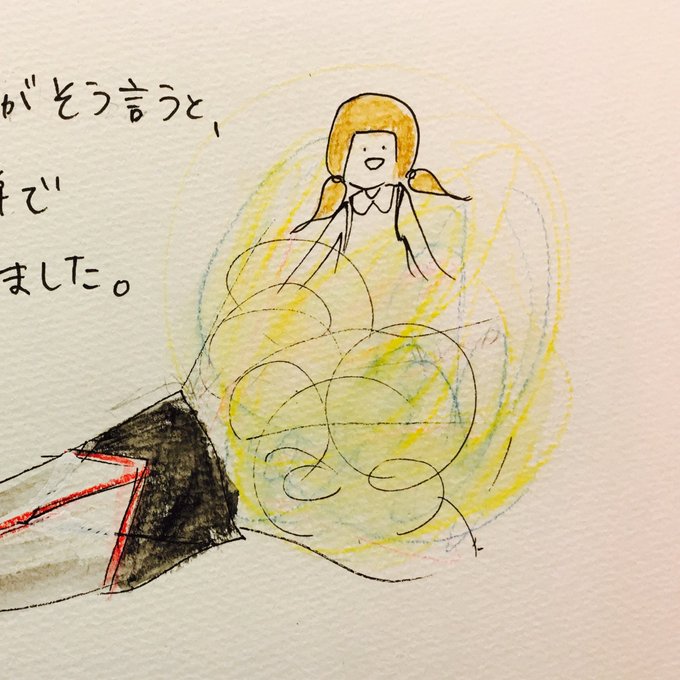 がそう言うと、
で
ました。